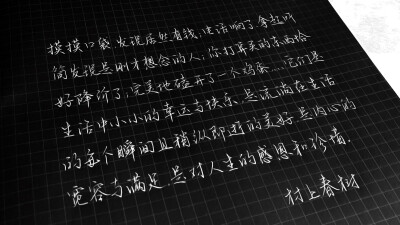 摸摸口袋发现居然有钱,电话响了拿起听
筒发现是刚才想念的人,你打算买的东西恰
好降价了,完美地磕开了一个鸡蛋…它们是
生活中小小的幸运与快乐,是流淌在生活
的每个瞬间且稍纵即逝的美好,是内心的
宽容与满足,是对人生的感恩和珍惜.
村上春树